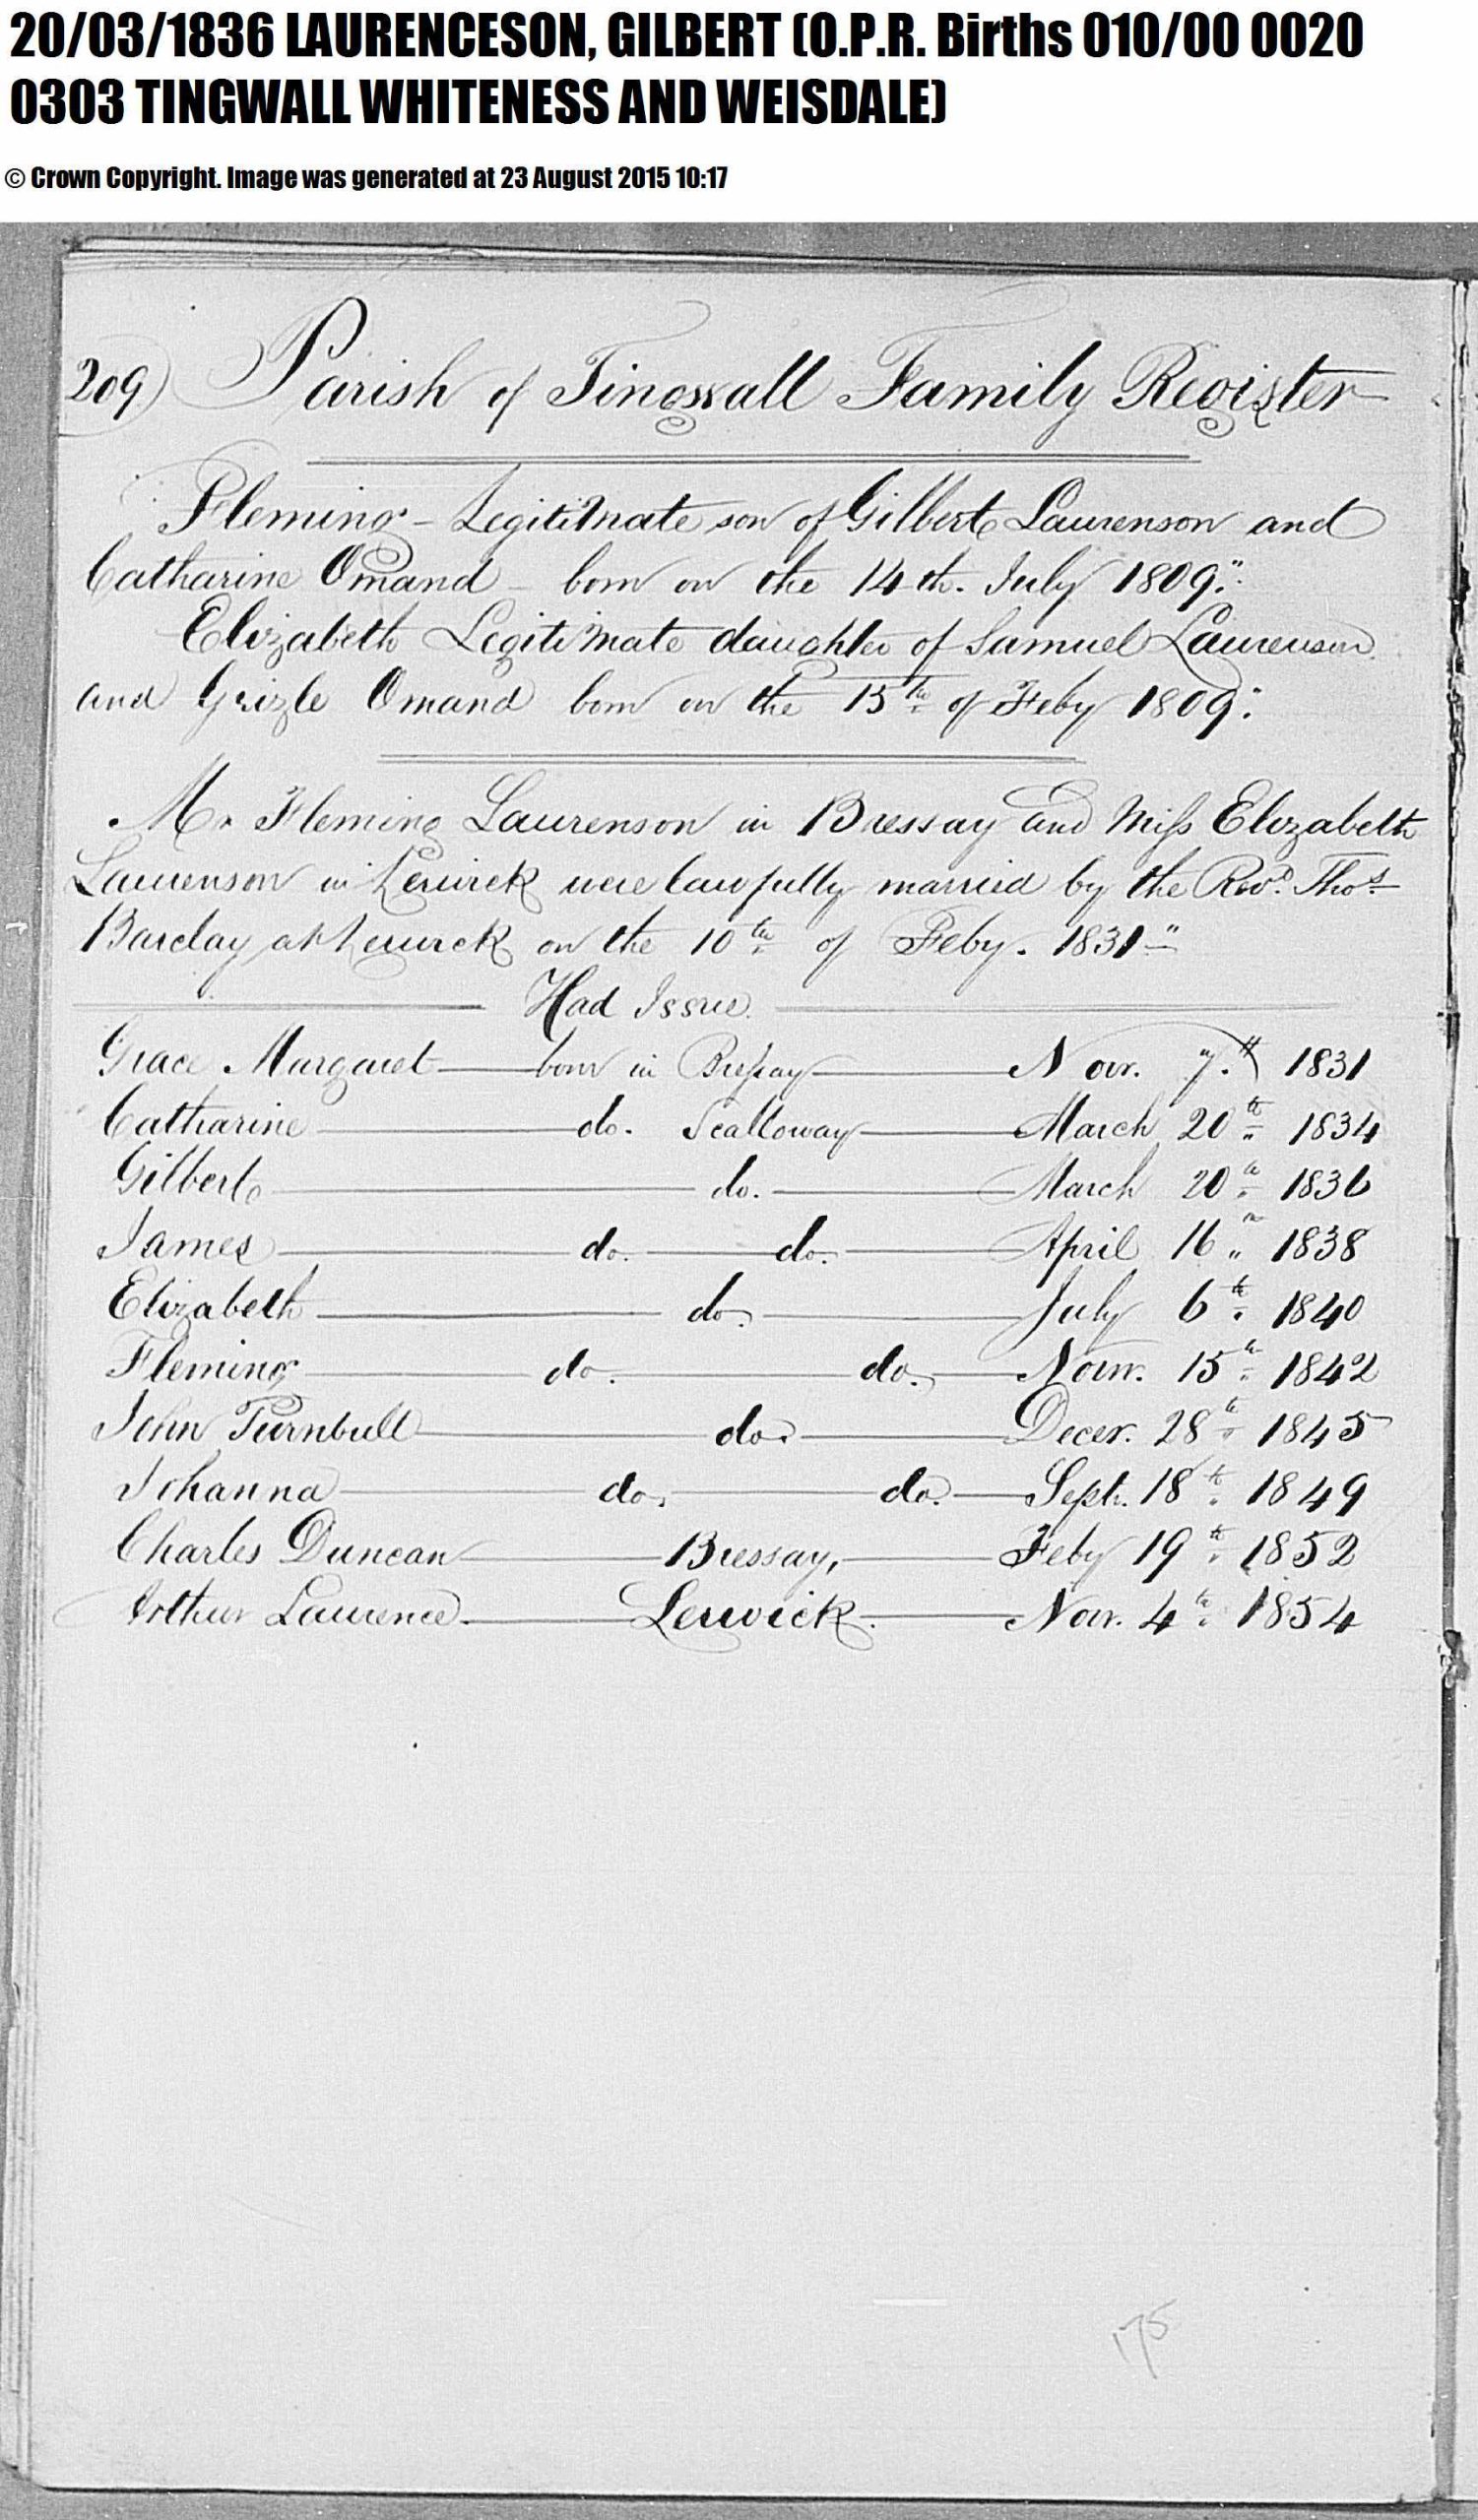 20/03/1836 LAURENCESON, GILBERT (O.P.R. Births 010/00 0020
0303 TINGWALL WHITENESS AND WEISDALE)
© Crown Copyright. Image was generated at 23 August 2015 10:17
209) Parish of Tingwall Family Register
Fleming - Legitimate son of Gilbert Laurenson and
Catharine Omand - born on the 14th. July 1809.
Elizabeth Legitimate daughter of Samuel Laurenson
and Grizle Omand born on the 15th of Feby 1809.
Mr Fleming Laurenson in Bressay and Miss Elizabeth
Laurenson in Lerwick were lawfully married by the Revd. Thos.
Barclay at Lerwick on the 10th of Feby. 1831
Had Issue.
Grace Margaret born in Bressay Novr. 7th 1831
Catharine do. Scalloway March 20th 1834
Gilbert do. March 20th 1836
James do. do. April 16th 1838
Elizabeth do. July 6th 1840
Fleming do. do. Novr. 15th 1842
John Turnbull do. Decer. 28th 1845
Johanna do. do. Sept. 18th 1849
Charles Duncan Bressay, Feby 19th 1852
Arthur Laurence. Lerwick. Novr. 4th 1854
175